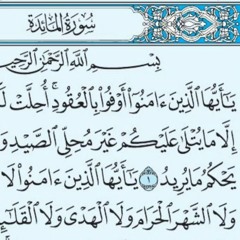 سُورَةُ الْمَائِدَةِ
بِسْمِ اللَّهِ الرَّحْمَٰنِ الرَّحِيمِ
يَا أَيُّهَا الَّذِينَ ءَامَنُوا أَوْفُوا بِالْعُقُودِ أُحِلَّتْ
إِلَّا مَا يُتْلَىٰ عَلَيْكُمْ غَيْرَ مُحِلِّي الصَّيْدِ
يَحْكُمُ مَا يُرِيدُ ١ يَا أَيُّهَا الَّذِينَ ءَامَنُوا لَا
وَلَا الشَّهْرَ الْحَرَامَ وَلَا الْهَدْيَ وَلَا الْقَلَٰٓئِ